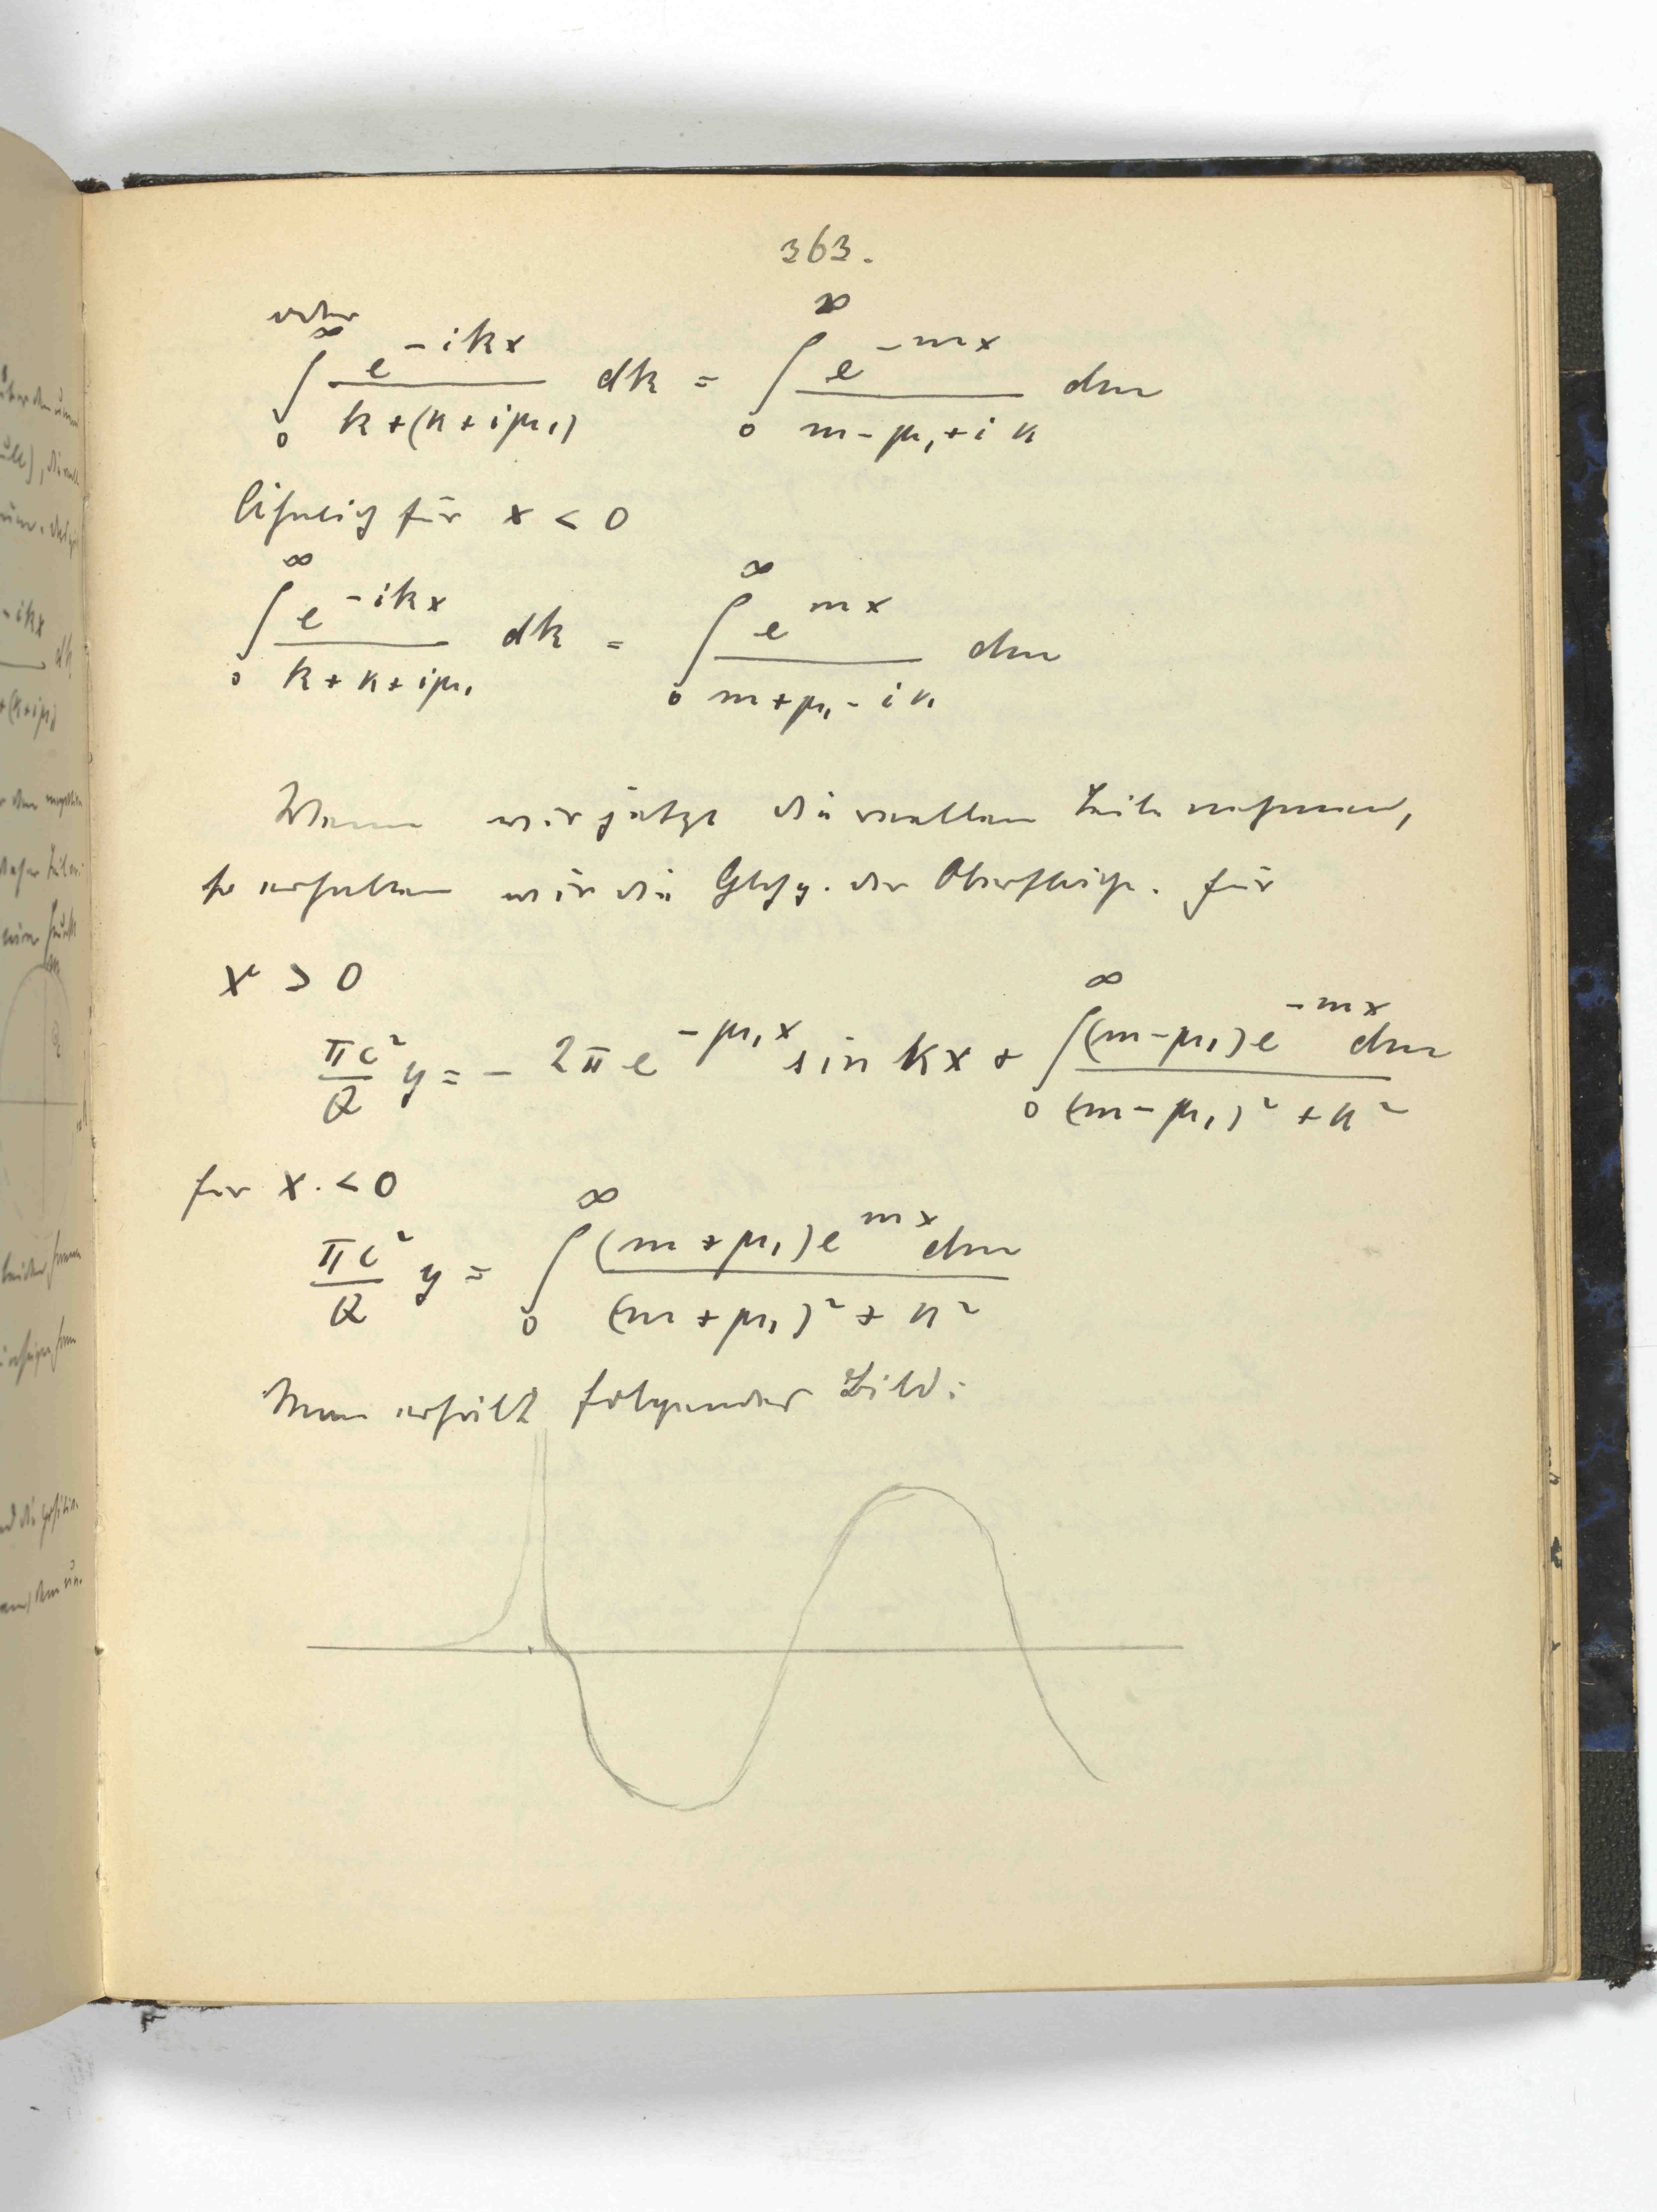 363.
oder
∫₀^∞ e^{-ikx} / (k + (κ + iμ₁)) dk = ∫₀^∞ e^{-mx} / (m - μ₁ + iκ) dm
Ähnlich für x < 0
∫₀^∞ e^{-ikx} / (k + κ + iμ₁) dk = ∫₀^∞ e^{mx} / (m + μ₁ - iκ) dm
Wenn wir jetzt die reellen Teile nehmen,
so erhalten wir die Glchg. der Oberfläche. Für
x > 0
πc²/Q y = - 2π e^{-μ₁x} sin κx + ∫₀^∞ (m - μ₁) e^{-mx} dm / ((m - μ₁)² + κ²)
für x < 0
πc²/Q y = ∫₀^∞ (m + μ₁) e^{mx} dm / ((m + μ₁)² + κ²)
Man erhält folgendes Bild: